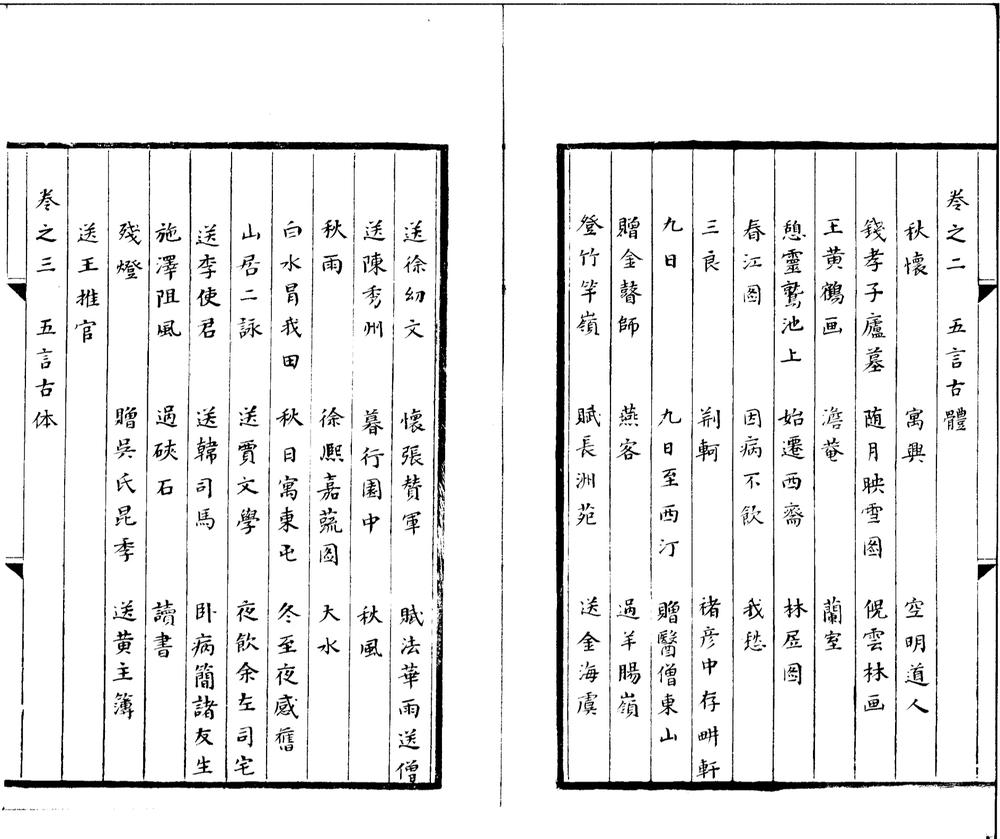 卷之二　五言古體
秋懷　寓興　空明道人
錢孝子廬墓　随月映雪图　倪雲林画
王黄鶴画　澹菴　蘭室
憩靈鷲池上　始遷西齋　林屋图
春江图　因病不飲　我愁
三良　荆軻　褚彦中存畊軒
九日　九日至西汀　贈醫僧東山
贈金瞽師　燕客　過羊腸嶺
登竹竿嶺　賦長洲苑　送金海虞
送徐幼文　懷張贊軍　賦法華雨送僧
送陳秀州　暮行園中　秋風
秋雨　徐熙嘉蔬图　大水
白水冒我田　秋日寓東屯　冬至夜感舊
山居二詠　送賈文學　夜飲余左司宅
送李使君　送韓司馬　卧病簡諸友生
施澤阻風　過硖石　讀書
殘燈　贈吳氏昆季　送黄主簿
送王推官
卷之三　五言古体